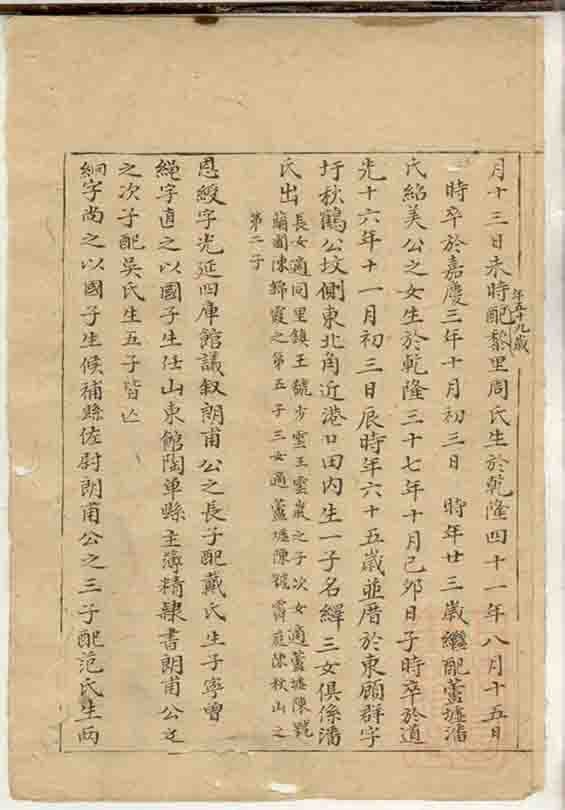 月十三日未時配黎里周氏生於乾隆四十一年八月十五日
年五十九歲
時卒於嘉慶三年十月初三日 時年廿三歲繼配蘆墟潘
氏紹美公之女生於乾隆三十七年十月己卯日子時卒於道
光十六年十一月初三日辰時年六十五歲並厝於東顧群字
圩秋鶴公墳側東北角近港口田內生一子名繹三女俱係潘
氏出
長女適同里鎮王號少雲王雲巖之子次女適蘆墟陳號
蘭圃陳錦霞之第五子三女適蘆墟陳號霽庭陳秋山之
第二子
恩綬字光延四庫館議敘朗甫公之長子配戴氏生子寧曾
繩字直之以國子生仕山東館陶單縣主簿精隸書朗甫公之
之次子配吳氏生五子皆亡
絅字尚之以國子生候補縣佐尉朗甫公之三子配范氏生兩